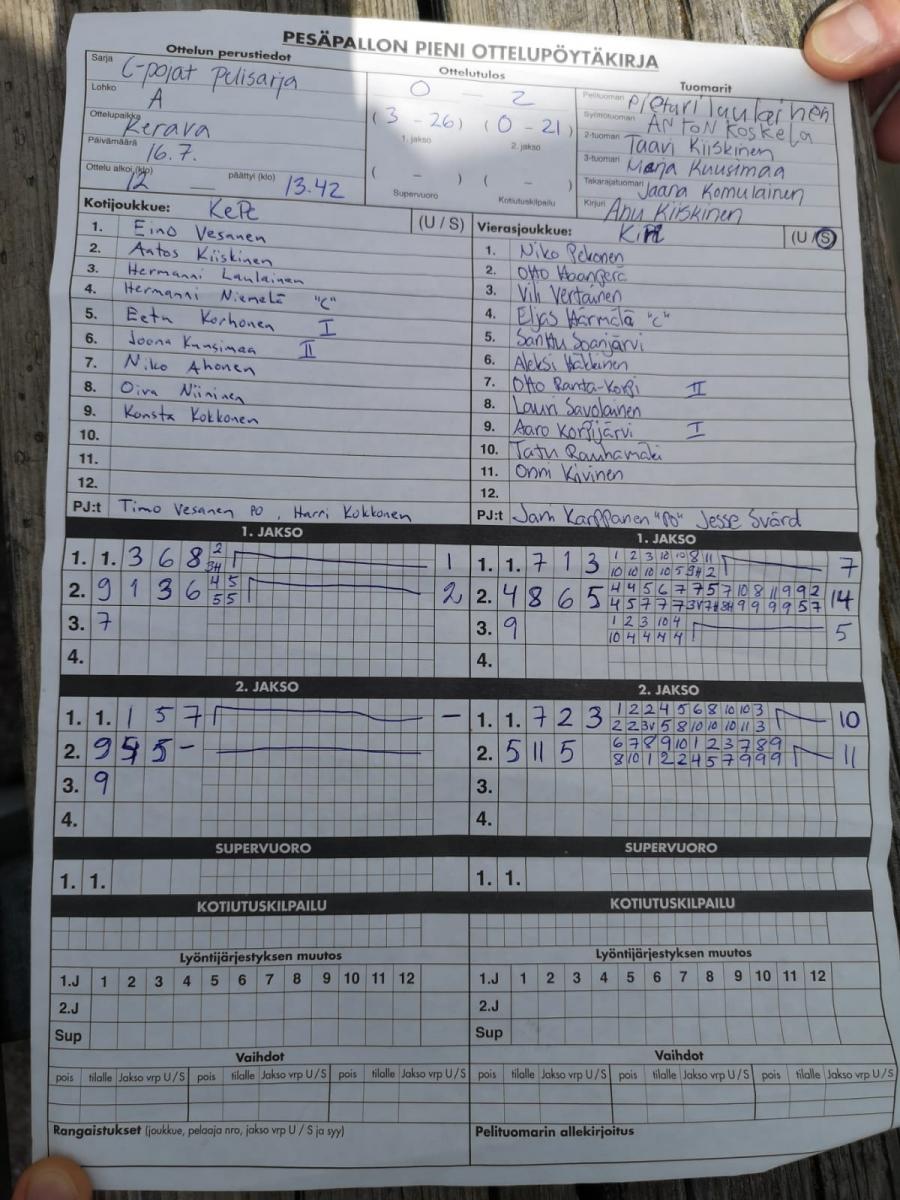 PESÄPALLON PIENI OTTELUPÖYTÄKIRJA
Ottelun perustiedot
Ottelutulos
Tuomarit
Sarja C-pojat pelisarja
Lohko A
Ottelupaikka Kerava
Päivämäärä 16.7.
Ottelu alkoi (klo) 12 — päättyi (klo) 13.42
0 — 2
(3 - 26) (0 - 21)
1. jakso 2. jakso
( - ) ( - )
Supervuoro Kotiutuskilpailu
Pelituomari Pieturi Laulainen
Syöttötuomari ANTON Koskela
2-tuomari Taavi Kiiskinen
3-tuomari Marja Kuusimaa
Takarajatuomari Jaana Komulainen
Kirjuri Anu Kiiskinen
Kotijoukkue: KePe (U / S)
1. Eino Vesanen
2. Antos Kiiskinen
3. Hermanni Laulainen
4. Hermanni Niemelä "C"
5. Eetu Korhonen I
6. Joona Kuusimaa II
7. Niko Ahonen
8. Oiva Niininen
9. Konsta Kokkonen
10.
11.
12.
PJ:t Timo Vesanen PO, Harri Kokkonen
Vierasjoukkue: (U / S)
1. Niko Pekonen
2. Otto
3. Vili Vertainen
4. Eljas Härmälä "C"
5. Santtu Soanjärvi
6. Aleksi Häkkinen
7. Otto Ranta-Korpi II
8. Lauri Savolainen
9. Aaro Korpijärvi I
10. Tatu Rauhamäki
11. Onni Kivinen
12.
PJ:t Jani Karppanen "PO" Jesse Svärd
1. JAKSO
1. 1. 3 6 8 2 1
34
2. 9 1 3 6 4 5 2
5 5
3. 7
4.
1. JAKSO
1. 1. 7 1 3 1 2 3 10 10 8 11 7
10 10 10 10 5 9H 2
2. 4 8 6 5 4 4 5 6 7 7 5 7 10 8 11 9 9 2 14
3. 9 1 2 3 10 4 5
10 4 4 4 4
4.
2. JAKSO
1. 1. 1 5 7 —
2. 9 5 —
3. 9
4.
2. JAKSO
1. 1. 7 2 3 1 2 2 4 5 6 8 10 10 3 10
2 2 3V 5 8 10 10 10 11 3
2. 5 11 5 6 7 8 9 10 1 2 3 7 8 9 11
8 10 1 2 2 4 5 7 9 9 9
3.
4.
SUPERVUORO
1. 1.
SUPERVUORO
1. 1.
KOTIUTUSKILPAILU
KOTIUTUSKILPAILU
Lyöntijärjestyksen muutos
1.J 1 2 3 4 5 6 7 8 9 10 11 12
2.J
Sup
Lyöntijärjestyksen muutos
1.J 1 2 3 4 5 6 7 8 9 10 11 12
2.J
Sup
Vaihdot
pois tilalle Jakso vrp U / S pois tilalle Jakso vrp U / S pois tilalle Jakso vrp U / S
Vaihdot
pois tilalle Jakso vrp U / S pois tilalle Jakso vrp U / S pois tilalle Jakso vrp U / S
Rangaistukset (joukkue, pelaaja nro, jakso vrp U / S ja syy)
Pelituomarin allekirjoitus